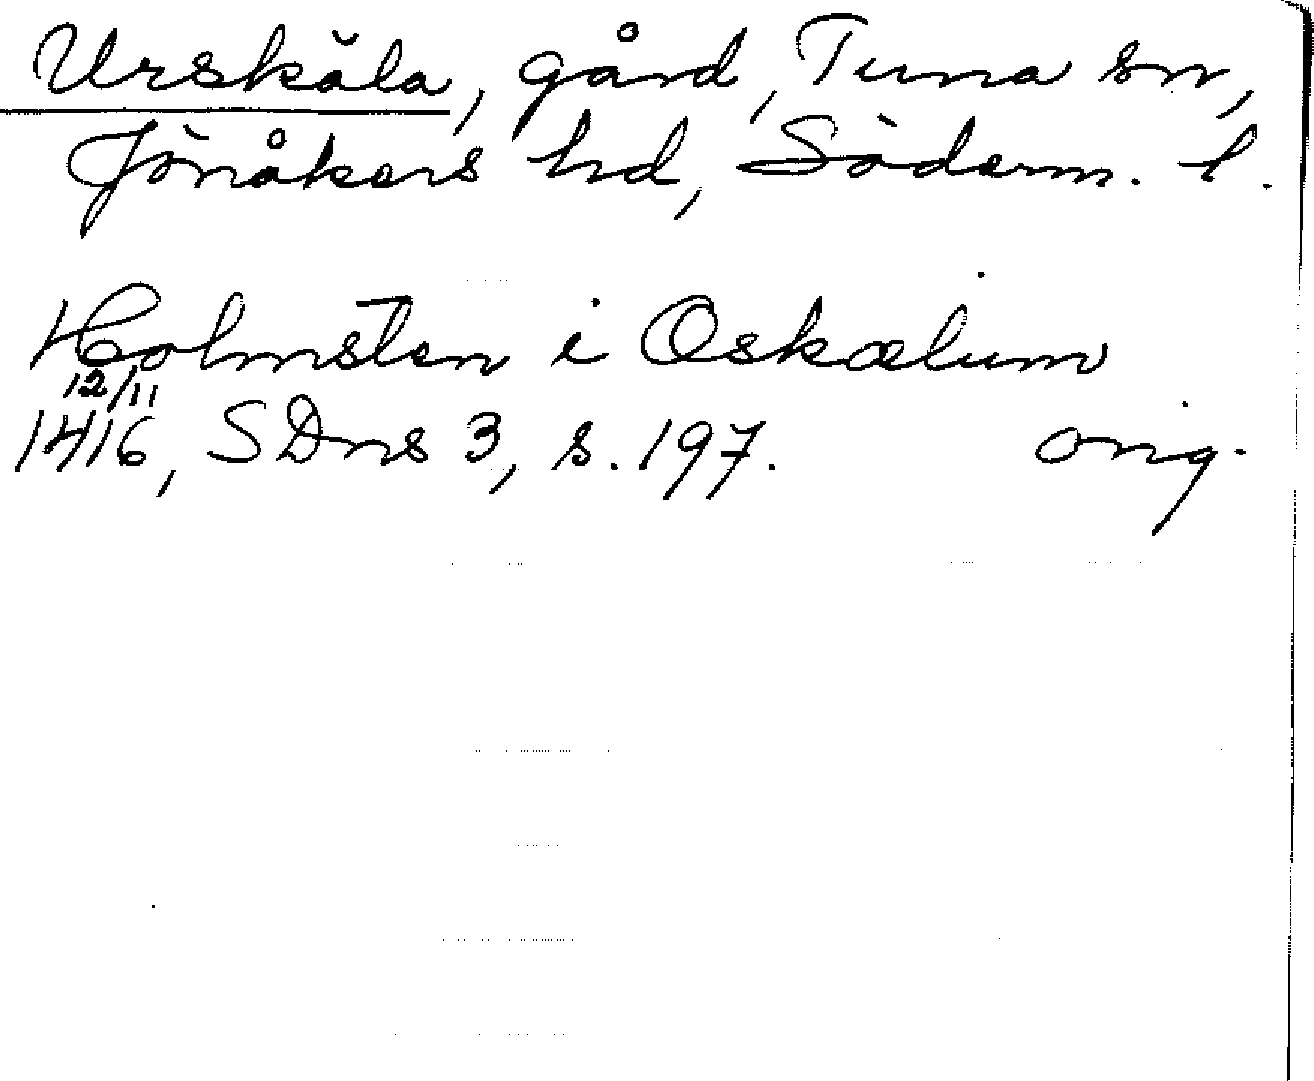 Urskäla, gård, Tuna sn,
Jönåkers hd, Söderm. l.
Holmsten i Oskælum
12/11
1416, SDns 3, s. 197. orig.